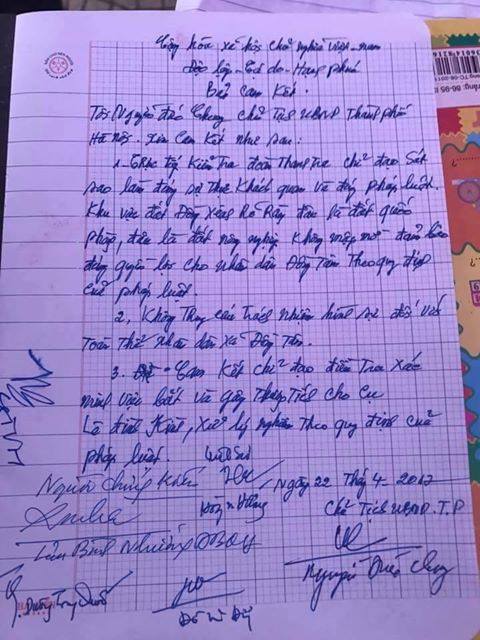 Cộng hòa xã hội chủ nghĩa Việt-nam
Độc lập-Tự do-Hạnh phúc
Bản Cam Kết.
Tôi Nguyễn đức Chung chủ tịch UBND Thành phố
Hà nội. Xin Cam Kết như sau:
1. Trực tiếp Kiểm Tra đoàn Thanh tra chỉ đạo Sát
sao làm đúng sự Thật Khách quan và đúng pháp luật.
Khu vực đất Đồng Xênh Rõ Ràng đâu là đất quốc
phòng, đâu là đất nông nghiệp Không mập mờ đảm bảo
đúng quyền lợi cho nhân dân Đồng Tâm Theo quy định
của pháp luật.
2, Không Truy cứu Trách Nhiệm hình sự đối với
Toàn Thể Nhân dân xã Đồng Tâm.
3. Cam Kết chỉ đạo điều Tra Xác
minh việc bắt và gây Thương Tích cho Cụ
Lê đình Kình, Xử lý nghiêm Theo quy định của
pháp luật.
Luật Sư
Người chứng kiến
Ngày 22 Thg 4-2017
Chủ Tịch UBND.T.P
Lưu Bình Nhưỡng ĐBQH
Nguyễn Đức Chung
Dương Trung Quốc
Đỗ